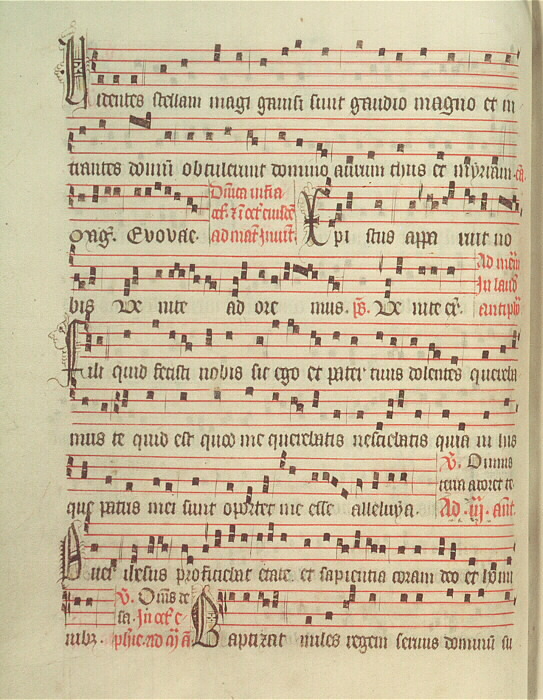 Uidentes stellam magi gauisi sunt gaudio magno et in
trantes domū obtulerunt domino aurum thus et myrram. cā.
Mag̃. Evovae. Dn̄ica infra
ad mat̄ Inuit̄. Xpi stus appa ruit no
bis Ve nite ad ore mus. p̄s. Ve nite ex̄. Ad
In laud
antiph
Fili quid fecisti nobis sic ego et pater tuus dolentes quereba
mus te quid est quod me querebatis nesciebatis quia in his
que patris mei sunt oportet me esse alleluya. V̄. Omnis
terra adoret te
Ad .iij. ant̄.
Puer ihesus proficiebat etate et sapientia coram deo et homi
nibꝫ. V̄. Om̄s de
sa
Baptizat miles regem seruus dominū su